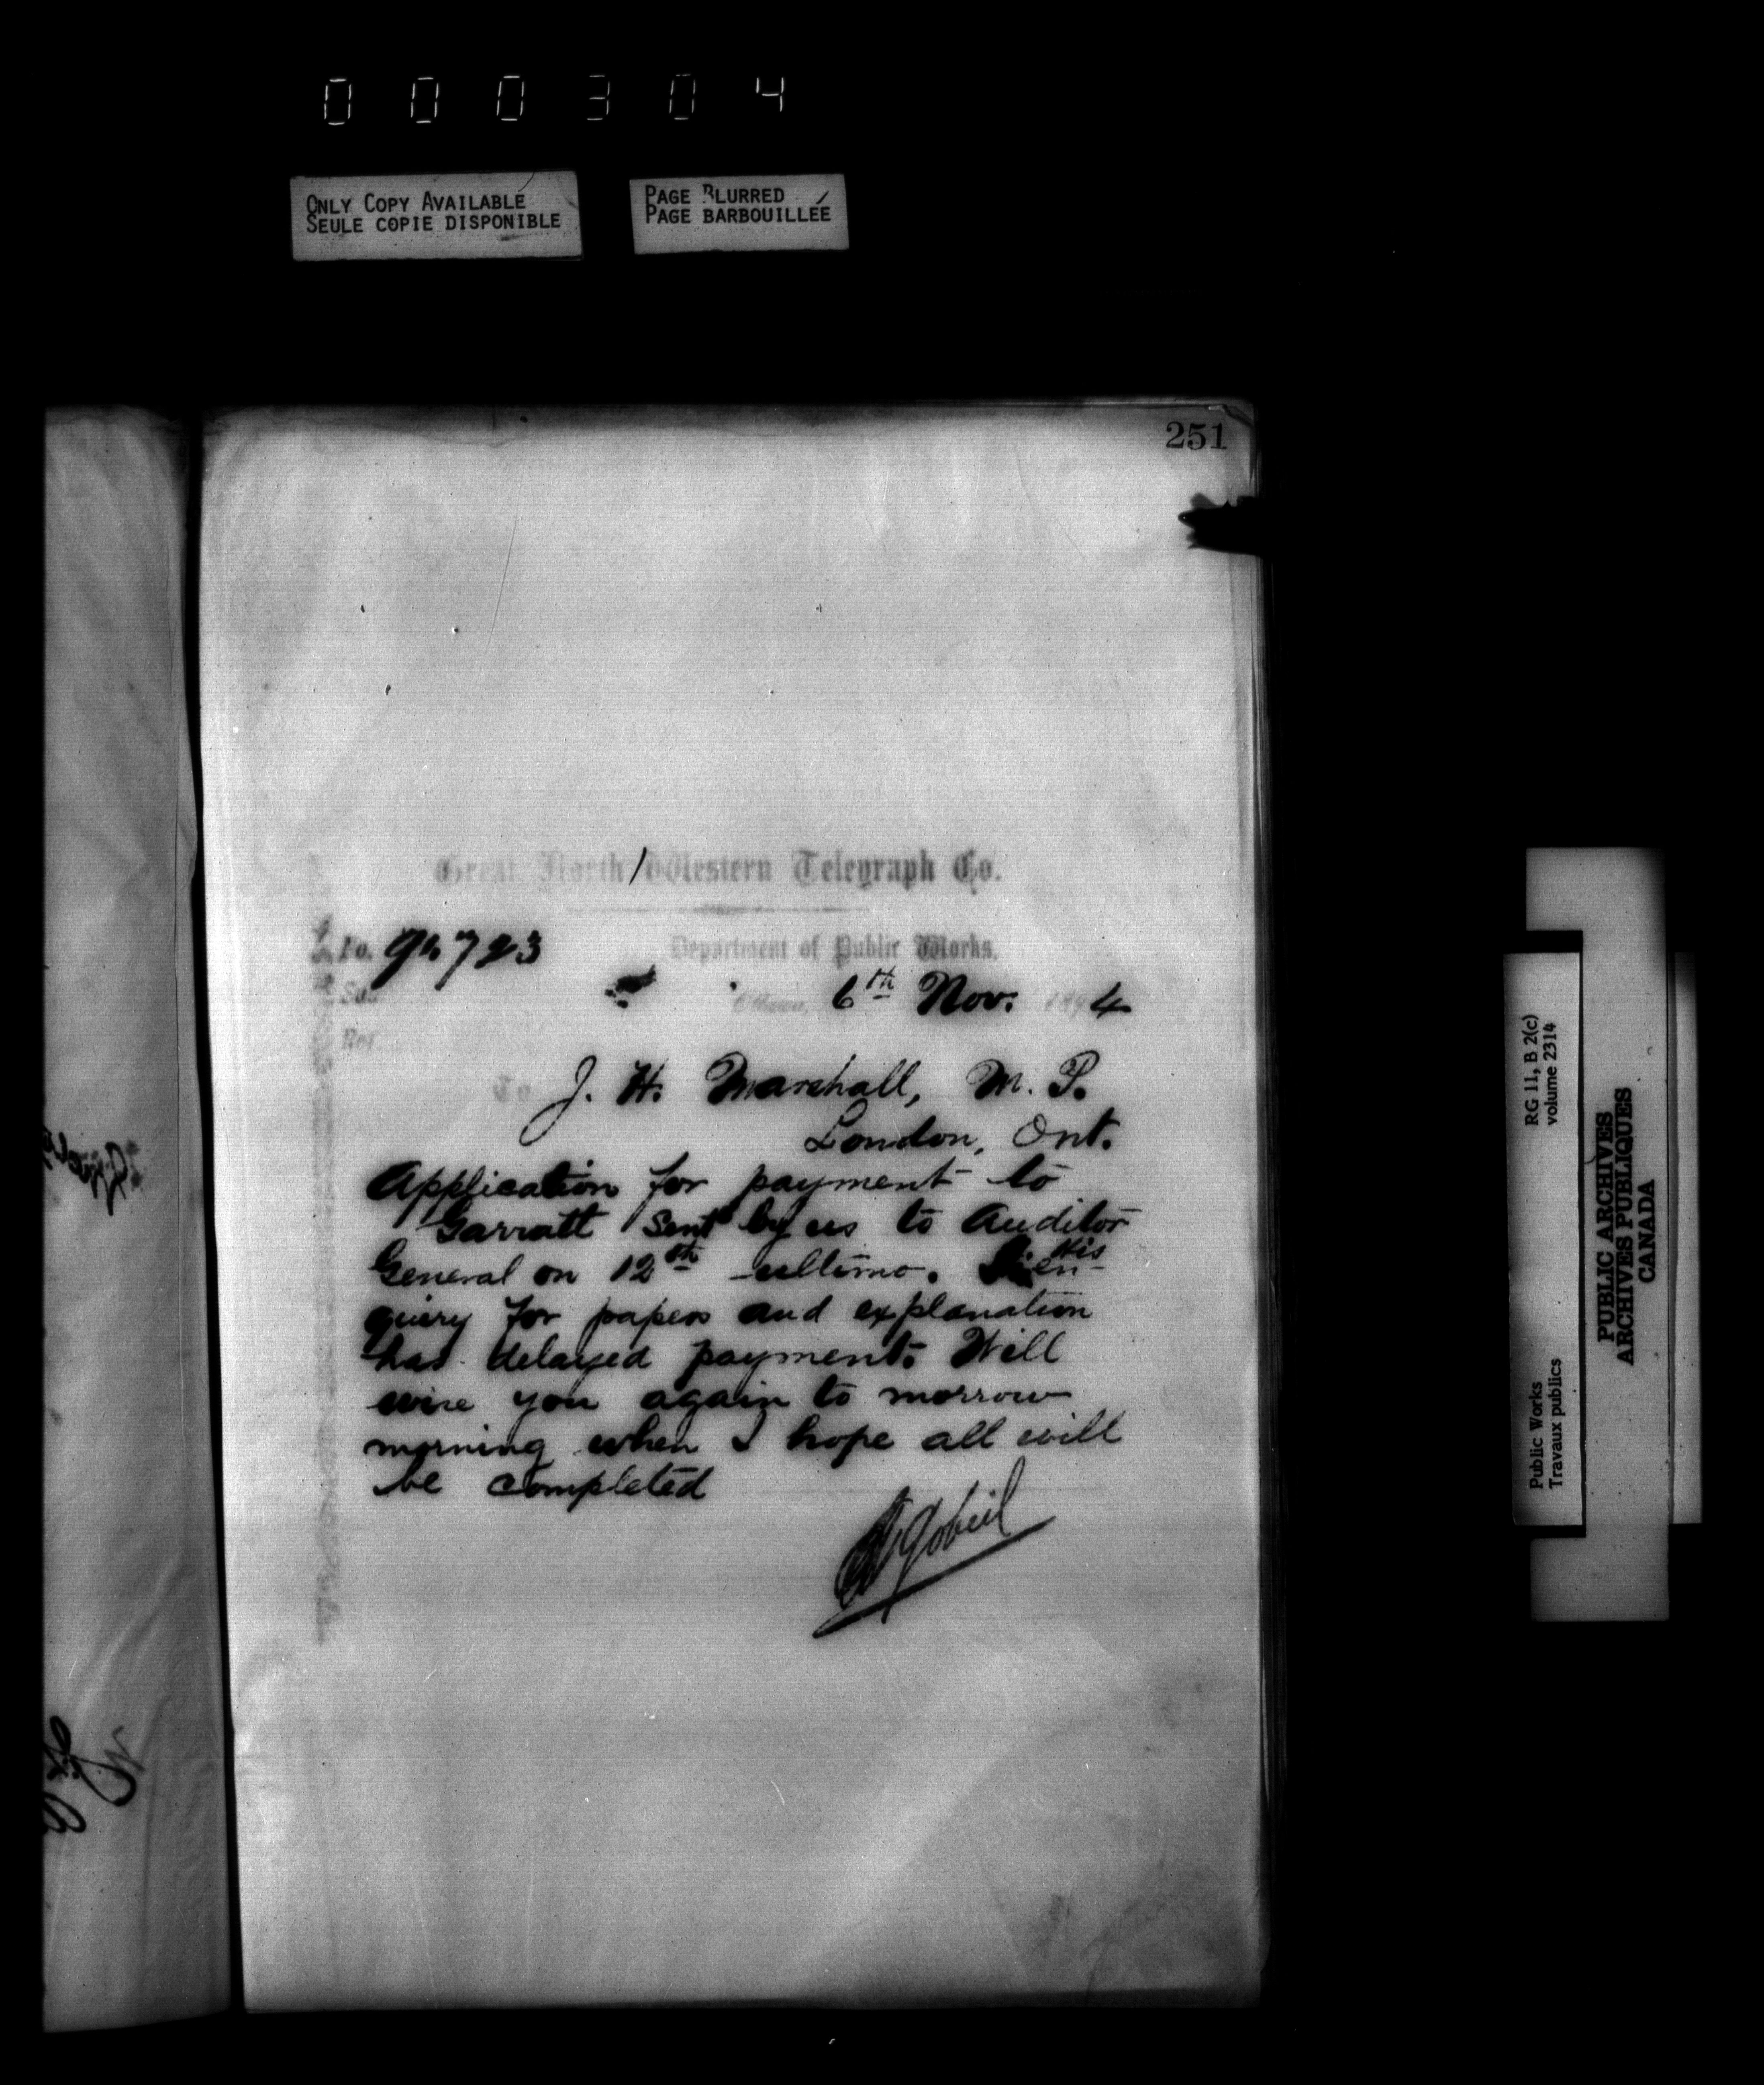 000304
ONLY COPY AVAILABLE
SEULE COPIE DISPONIBLE
PAGE BLURRED
PAGE BARBOUILLÉE
251
Great North Western Telegraph Co.
No. 723
Department of Public Works.
Ottawa, 6th Nov. 1894
To J. H. Marshall, M. P.
London, Ont.
Application for payment to
Garratt sent by us to Auditor
General on 12th ultimo. His en-
quiry for papers and explanation
has delayed payment. Will
wire you again to morrow
morning when I hope all will
be completed
A Gobeil
RG 11, B 2(c)
volume 2314
Public Works
Travaux publics
PUBLIC ARCHIVES
ARCHIVES PUBLIQUES
CANADA